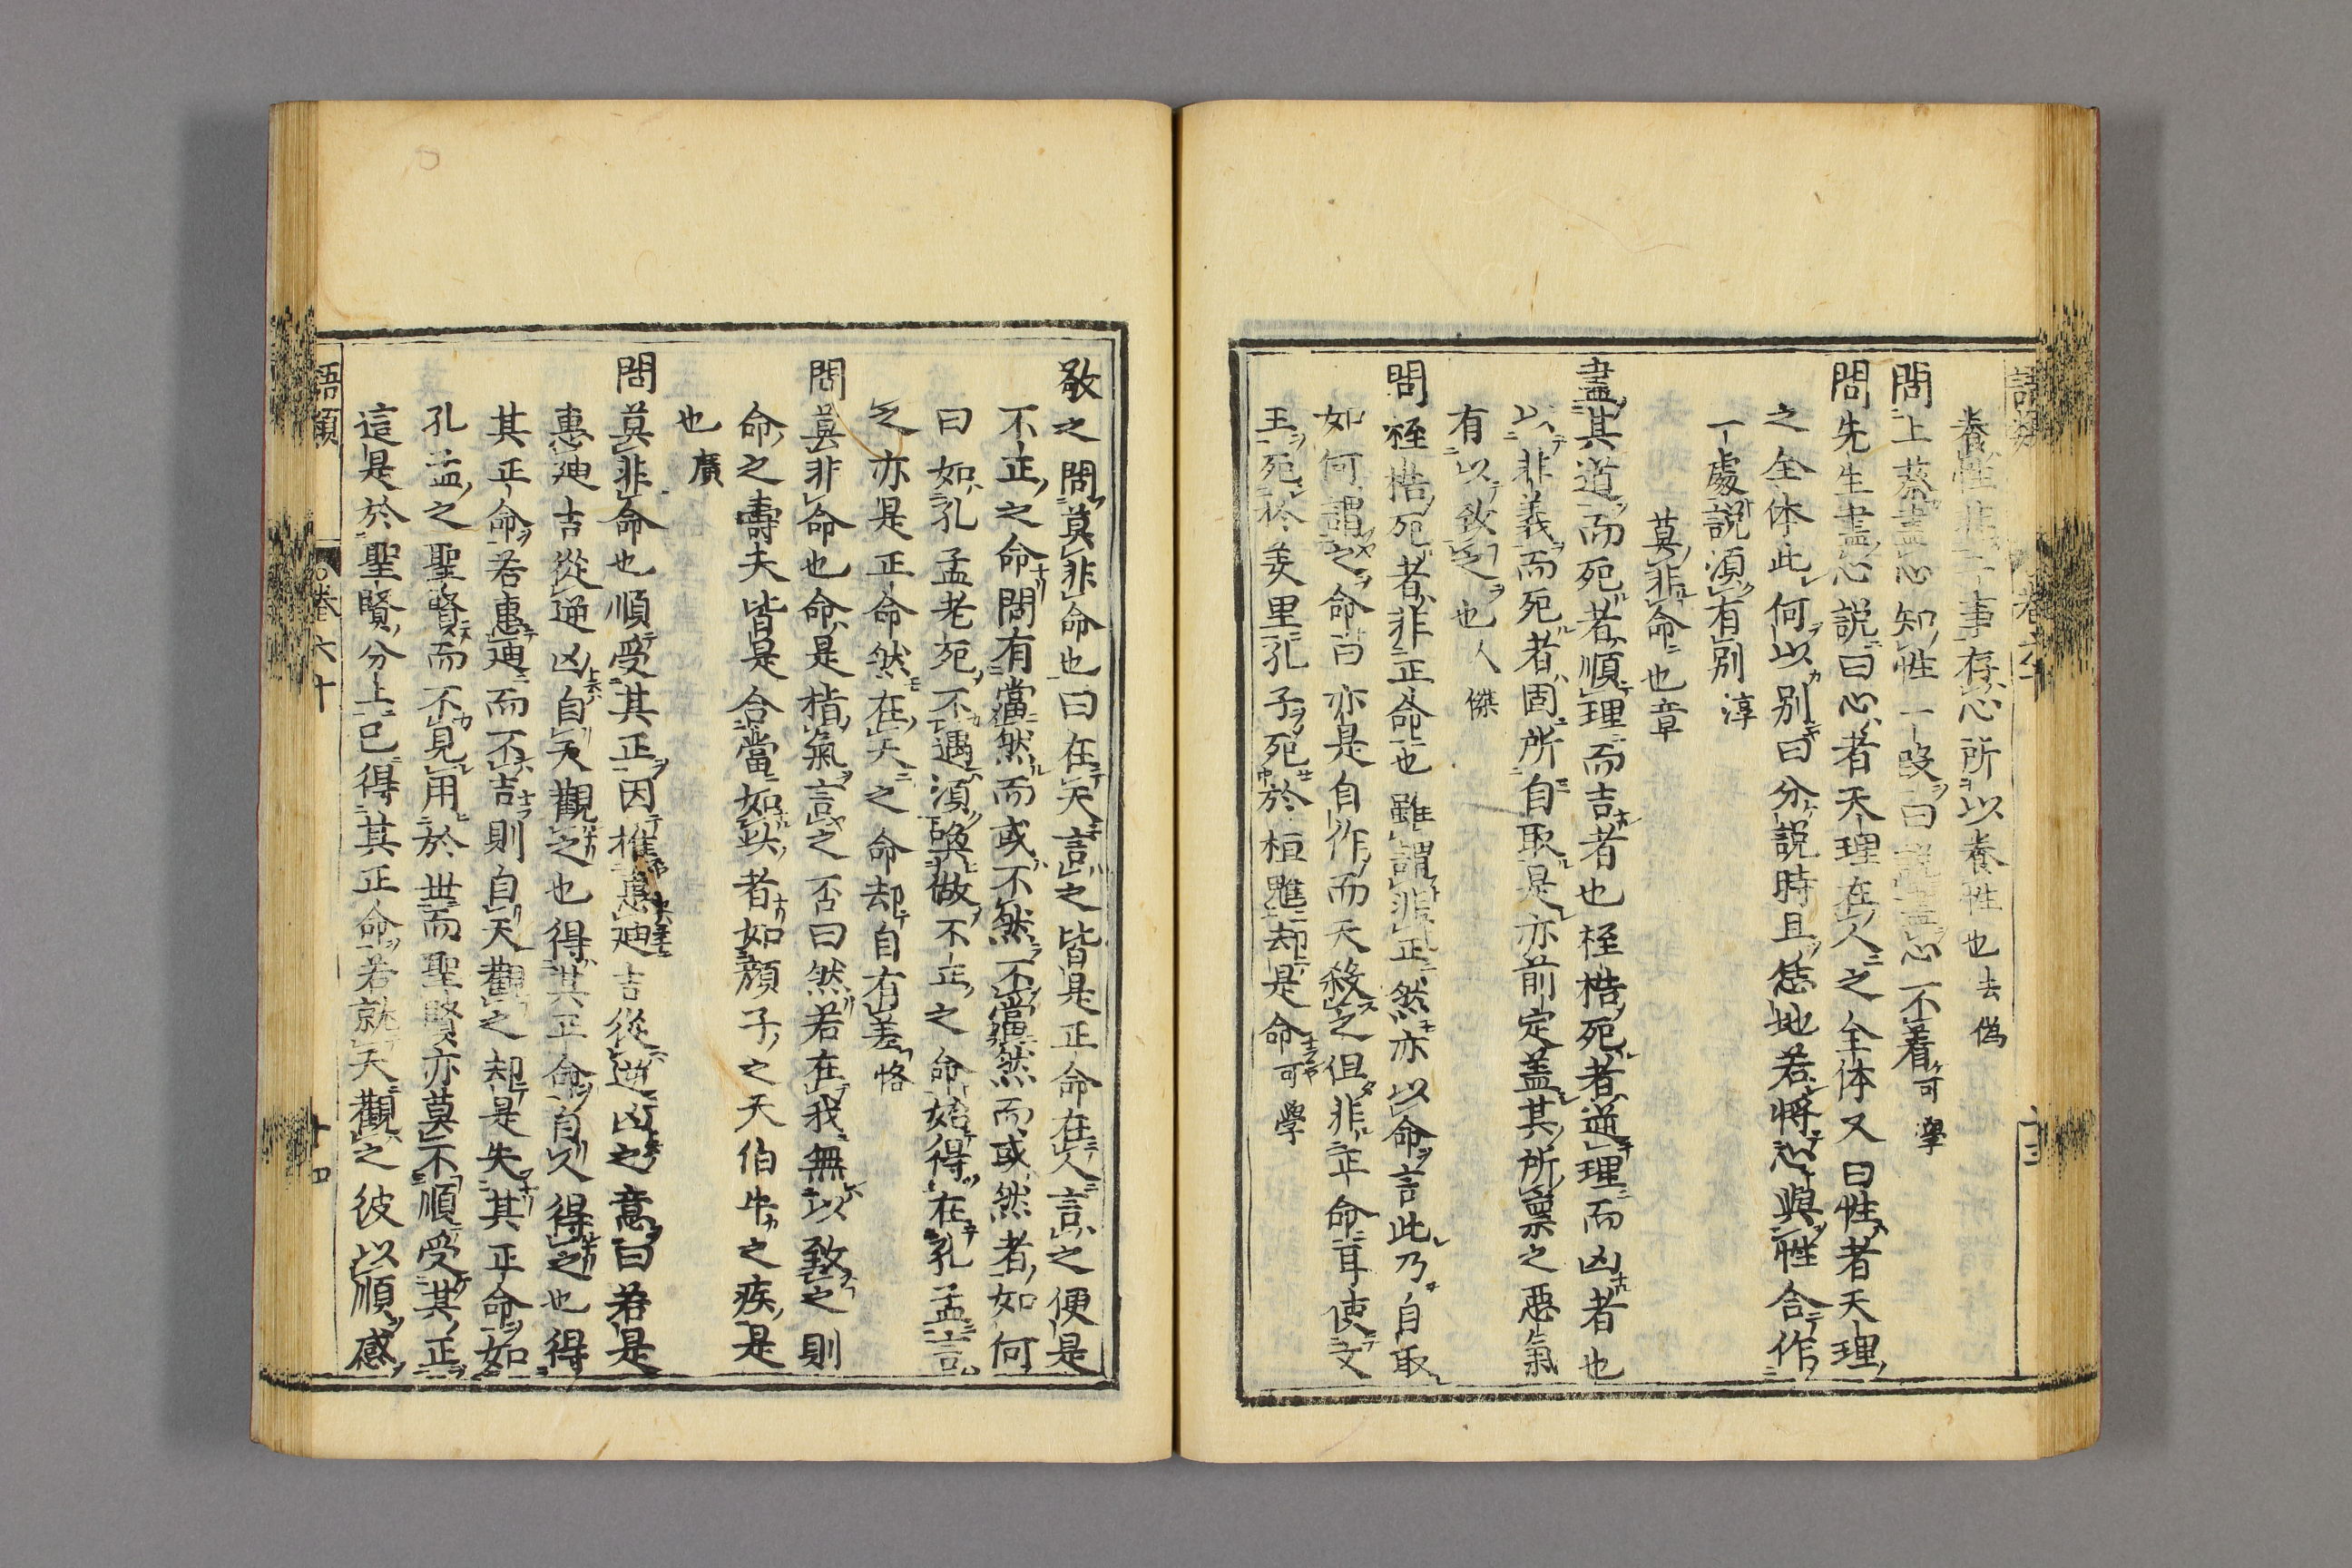 語類 卷六十
養性非二事存心所以養性也去偽
問上蔡盡心知性一段曰說盡心不着可學
問先生盡心說曰心者天理在人之全体又曰性者天理
之全体此何以別曰分說時且恁地若將心與性合作
一處說須有別淳
莫非命也章
盡其道而死者順理而吉者也桎梏死者逆理而凶者也
以非義而死者固所自取是亦前定盖其所禀之惡氣
有以致之也人傑
問桎梏死者非正命也雖謂非正然亦以命言此乃自取
如何謂之命曰亦是自作而天殺之但非正命耳使文
王死於羑里孔子死於桓魋却是命可學
敬之問莫非命也曰在天言之皆是正命在人言之便是
不正之命問有當然而或不然不當然而或然者如何
曰如孔孟老死不遇須喚做不正之命始得在孔孟言
之亦是正命然在天之命却自有差恪
問莫非命也命是指氣言之否曰然若在我無以致之則
命之壽夭皆是合當如此者如顏子之夭伯牛之疾是
也廣
問莫非命也順受其正因推惠迪吉從逆凶之意曰若是
惠迪吉從逆凶自天觀之也得其正命自人得之也得
其正命若惠迪而不吉則自天觀之却是失其正命如
孔孟之聖賢而不見用於世而聖賢亦莫不順受其正
這是於聖賢分上已得其正命若就天觀之彼以順感
語類 卷六十 十四